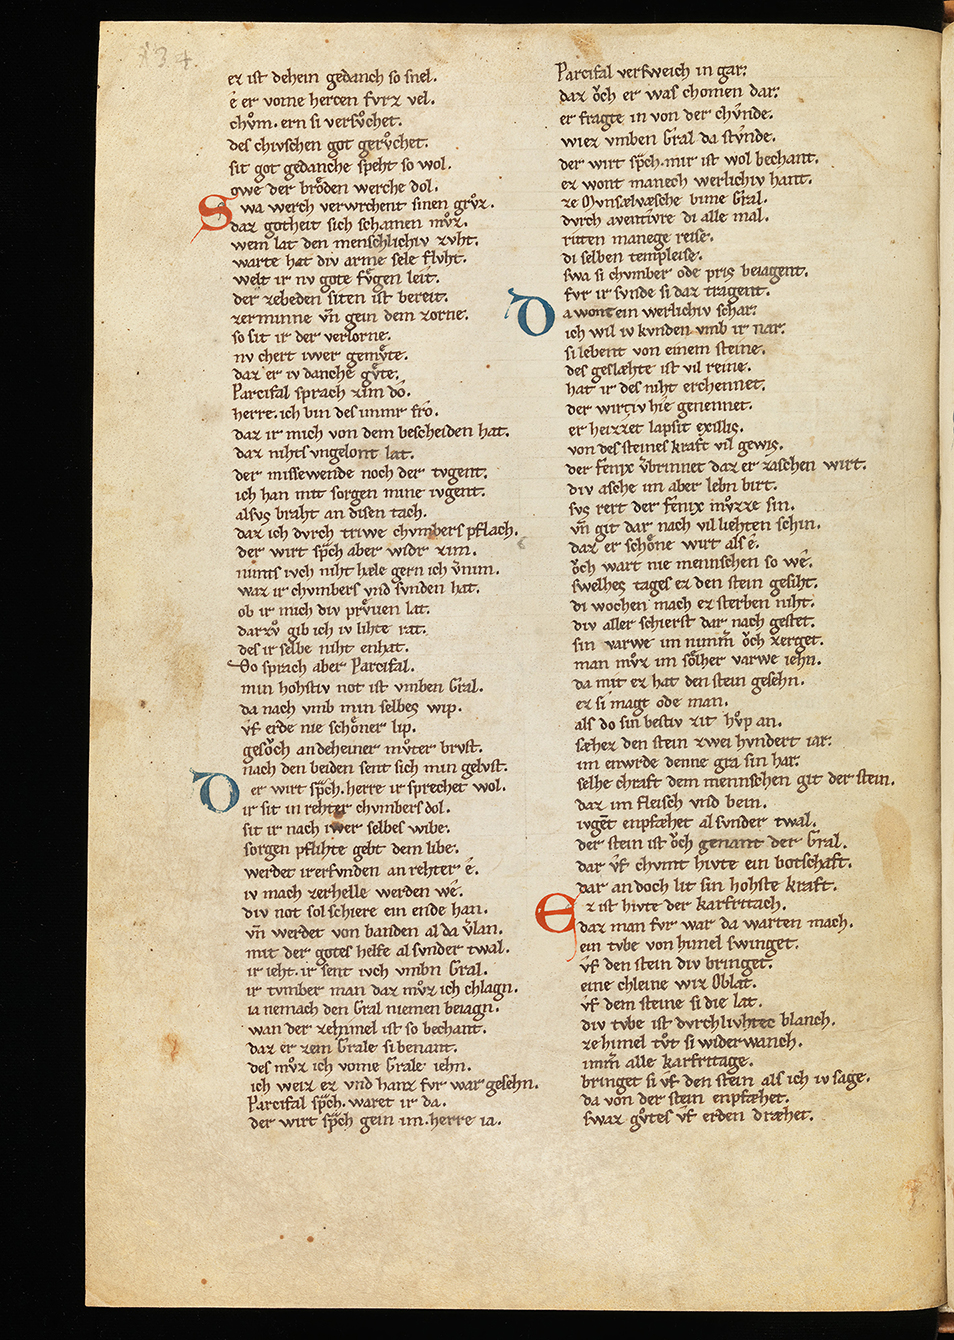 134.
ez ist dehein gedanch so snel.
é er vome hercen fvrz vel.
chvͦm. ern si versvͦchet.
des chivschen got gerv̊chet.
sit got gedanche speht so wol.
owe der brôden werche dol.
Swa werch verwrchent sinen grvͦz.
daz gotheit sich schamen mvͦz.
wem lat den menschlichiv zvht.
warte hat div arme sele flvht.
welt ir nv gote fvͤgen leit.
der zebeden siten ist bereit.
zer minne vn̄ gein dem zorne.
so sit ir der verlorne.
nv chert iwer gemvͤte.
daz er iv danche gvͤte.
Parcifal sprach zim do.
herre. ich bin des immr fro.
daz ir mich von dem bescheiden hat.
daz nihts vngelont lat.
der missewende noch der tvgent.
ich han mit sorgen mine ivgent.
alsvs braht an disen tach.
daz ich dvrch triwe chvmbers pflach.
der wirt sp̄ch aber widr zim.
nimts ivch niht hæle gern ich v̄nim.
waz ir chvmbers vnd svnden hat.
ob ir mich div prvͤuen lat.
dar zvͦ gib ich iv lihte rat.
des ir selbe niht enhat.
Do sprach aber Parcifal.
min hohstiv not ist vmben Gral.
da nach vmb min selbes wip.
vf erde nie schoͤner lip.
gesoͮch an deheiner mvͦter brvst.
nach den beiden sent sich min gelvst.
Der wirt sp̄ch. herre ir sprechet wol.
ir sit in rehter chvmbers dol.
sit ir nach iwer selbes wibe.
sorgen pflihte gebt dem libe.
werdet ir erfvnden an rehter é.
iv mach zerhelle werden wé.
div not sol schiere ein ende han.
vn̄ werdet von banden al da v̄lan.
mit der gotes helfe al svnder twal.
ir ieht. ir sent ivch vmbn Gral.
ir tvmber man daz mvͦz ich chlagn.
ia nemach den Gral niemen beiagn.
wan der ze himel ist so bechant.
daz er zem Grale si benant.
des mvͦz ich vome Grale iehn.
ich weiz ez vnd hanz fvr war gesehn.
Parcifal sp̄ch. waret ir da.
der wirt sp̄ch gein im. herre ia.
Parcifal versweich in gar.
daz oͮch er was chomen dar.
er fragte in von der chvnde.
wiez vmben Gral da stvnde.
der wirt sp̄ch. mir ist wol bechant.
ez wont manech werlichiv hant.
ze Mvnsælvæsche bime Gral.
dvrch aventivre di alle mal.
riten manege reise.
di selben templeise.
swa si chvmber ode pris beiagent.
fvr ir svnde si daz tragent.
Da wont ein werlichiv schar.
ich wil iv kvnden vmb ir nar.
si lebent von einem steine.
des geslæhte ist vil reine.
hat ir des niht erchennet.
der wirt iv hie genennet.
er heizzet lapsit exillis.
von des steines kraft vil gewis.
der fenix v̄brinnet daz er zaschen wirt.
div asche im aber lebn birt.
svs rert der fenix mvͦzze sin.
vn̄ git dar nach vil liehten schin.
daz er schoͤne wirt als é.
oͮch wart nie mennschen so wé.
swelhes tages ez den stein gesiht.
di wochen mach ez sterben niht.
div aller schierst dar nach gestet.
sin varwe im nimm̄ oͮch zerget.
man mvͦz im soͤlher varwe iehn.
da mit ez hat den stein gesehn.
ez si magt ode man.
als do sin bestiv zit hvͦp an.
sæhez den stein zwei hvndert iar.
im enwrde denne gra sin har.
selhe chraft dem mennschen git der stein.
daz im fleisch vnd bein.
ivgēt enpfæhet al svnder twal.
der stein ist oͮch genant der Gral.
dar vf chvmt hivte ein botschaft.
dar an doch lit sin hohste kraft.
Ez ist hivte der karfritach.
daz man fvr war da warten mach.
ein tvbe von himel swinget.
vf den stein div bringet.
eine chleine wiz Oblat.
vf dem steine si die lat.
div tvbe ist dvrchlivhtec blanch.
ze himel tvͦt si widerwanch.
imm̄ alle karfritage.
bringet si vf den stein als ich iv sage.
da von der stein enpfæhet.
swaz gvͦtes vf erden dræhet.